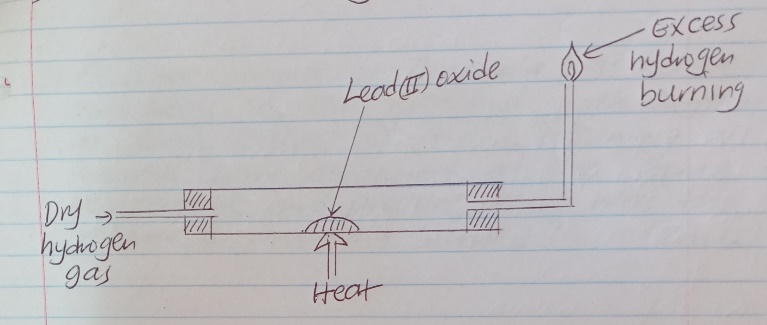 Excess
hydrogen
burning
Lead(II) oxide
Dry
hydrogen
gas
Heat